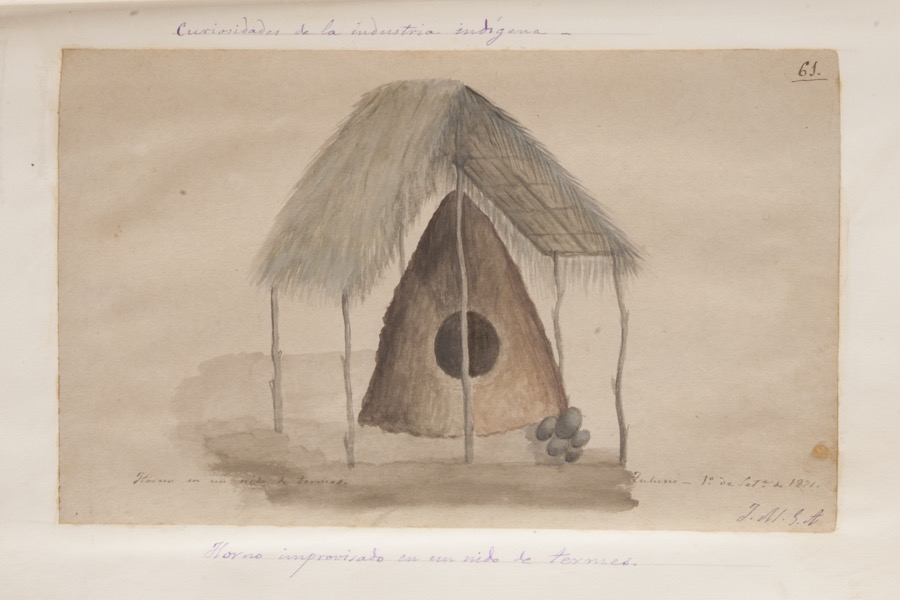 Curiosidades de la industria indígena –
61.
Horno en un nido de termes.
1º de Set.e de
J. M. G. A
Horno improvisado en un nido de termes.